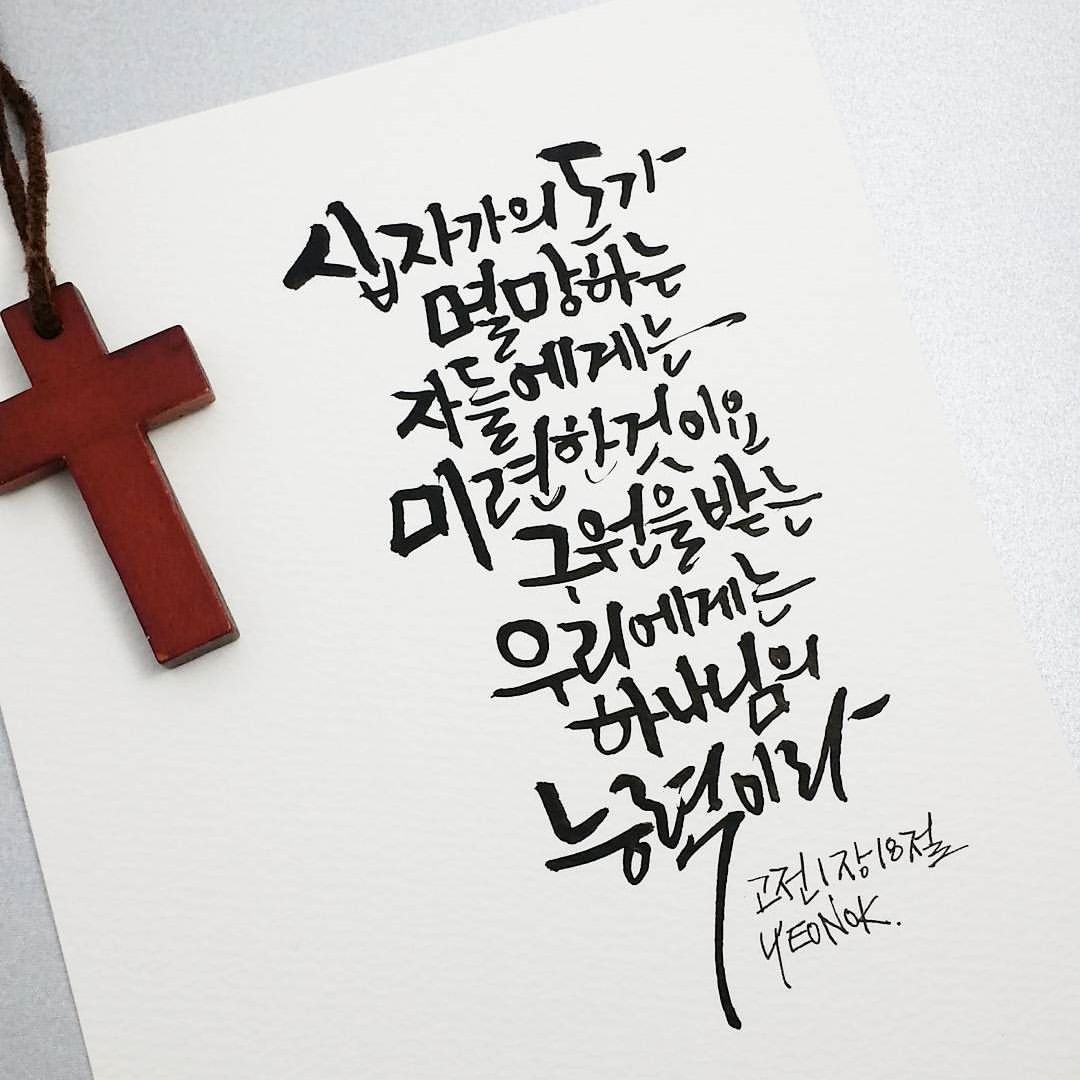 십자가의 도가
멸망하는
자들에게는
미련한 것이요
구원을 받는
우리에게는
하나님의
능력이라
고전 1장 18절
YEONOK.